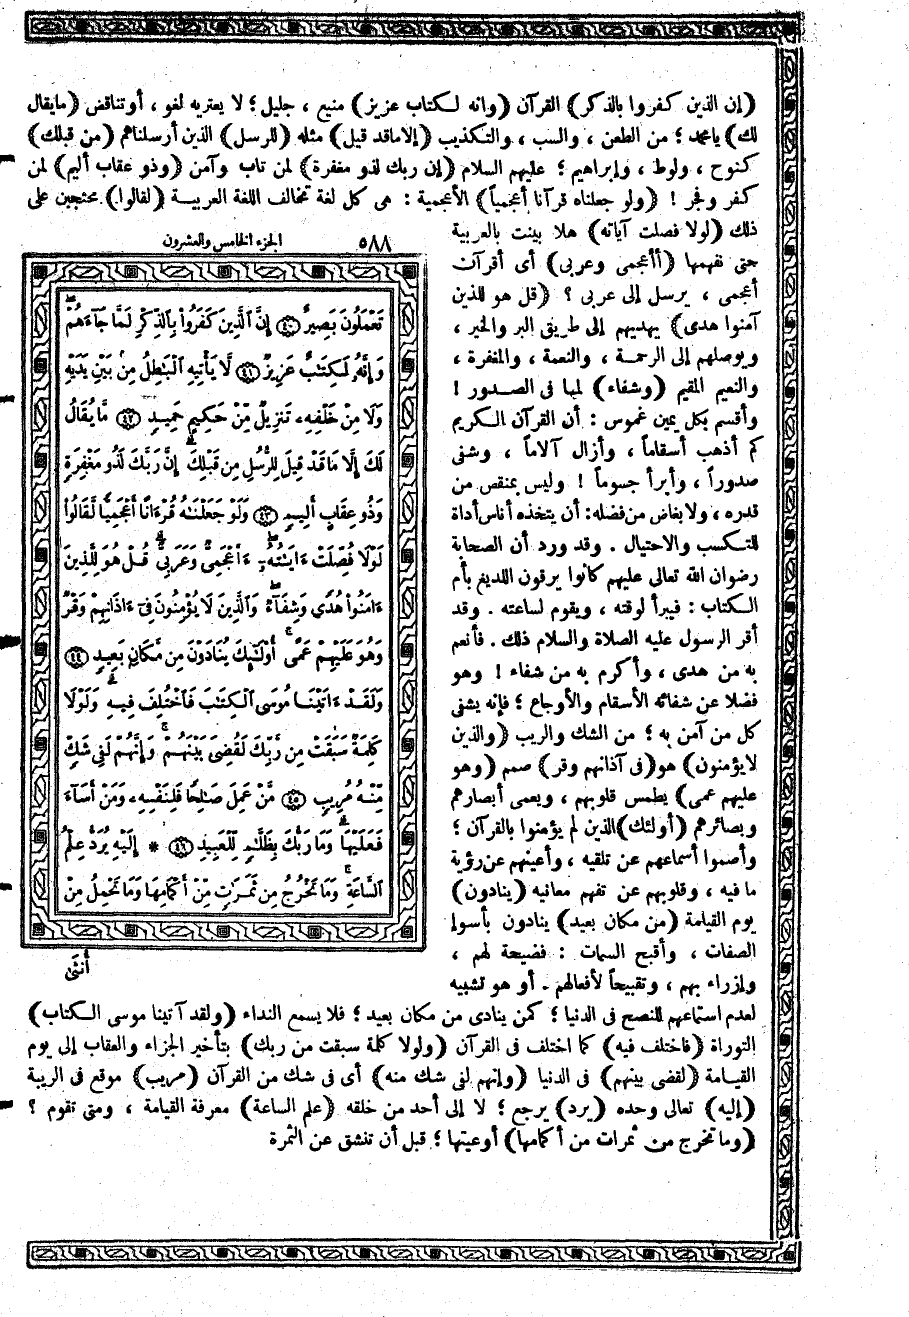 (إن الذين كفروا بالذكر) القرآن (وإنه لكتاب عزيز) منيع ، جليل ؛ لا يعتريه لغو ، أو تناقض (ما يقال
لك) يا محمد ؛ من الطعن ، والسب ، والتكذيب (إلا ما قد قيل) مثله (للرسل) الذين أرسلناهم (من قبلك)
كنوح ، ولوط ، وإبراهيم ؛ عليهم السلام (إن ربك لذو مغفرة) لمن تاب وآمن (وذو عقاب أليم) لمن
كفر وفجر ! (ولو جعلناه قرآنا أعجمياً) الأعجمية : هى كل لغة تخالف اللغة العربيـة (لقالوا) محتجين على
ذلك (لولا فصلت آياته) هلا بينت بالعربية
حتى نفهمها (أأعجمى وعربى) أى أقرآن
أعجمى ، يرسل إلى عربى ؟ (قل هو للذين
آمنوا هدى) يهديهم إلى طريق البر والخير ،
ويوصلهم إلى الرحمـة ، والنعمة ، والمغفرة ،
والنعيم المقيم (وشفاء) لما فى الصـدور !
وأقسم بكل يمين غموس : أن القرآن الـكريم
كم أذهب أسقاماً ، وأزال آلاماً ، وشفى
صدوراً ، وأبرأ جسوماً ! وليس بمنقص من
قدره ، ولا بغاض من فضله: أن يتخذه أناس أداة
للتـكسب والاحتيال . وقد ورد أن الصحابة
رضوان الله تعالى عليهم كانوا يرقون اللديغ بأم
الـكتاب : فيبرأ لوقته ، ويقوم لساعته . وقد
أقر الرسول عليه الصلاة والسلام ذلك . فأنعم
به من هدى ، وأكرم به من شفاء ! وهو
فضلا عن شفائه الأسقام والأوجاع ؛ فإنه يشفى
كل من آمن به ؛ من الشك والريب (والذين
لا يؤمنون) هو (فى آذانهم وقر) صمم (وهو
عليهم عمى) يطمس قلوبهم ، ويعمى أبصارهم
وبصائرهم (أولئك) الذين لم يؤمنوا بالقرآن ؛
وأصموا أسماعهم عن تلقيه ، وأعينهم عن رؤية
ما فيه ، وقلوبهم عن تفهم معانيه (ينادون)
يوم القيامة (من مكان بعيد) ينادون بأسوإ
الصفات ، وأقبح السمات : فضيحة لهم ،
وإزراء بهم ، وتقبيحاً لأفعالهم . أو هو تشبيه
لعدم استماعهم للنصح فى الدنيا ؛ كمن ينادى من مكان بعيد ؛ فلا يسمع النداء (ولقد آتينا موسى الـكتاب)
التوراة (فاختلف فيه) كما اختلف فى القرآن (ولولا كلمة سبقت من ربك) بتأخير الجزاء والعقاب إلى يوم
القيـامة (لقضى بينهم) فى الدنيا (وإنهم لفى شك منه) أى فى شك من القرآن (مريب) موقع فى الريبة
(إليه) تعالى وحده (يرد) يرجع ؛ لا إلى أحد من خلقه (علم الساعة) معرفة القيامة ، ومتى تقوم ؟
(وما تخرج من ثمرات من أكمامها) أوعيتها ؛ قبل أن تنشق عن الثمرة
٥٨٨ الجزء الخامس والعشرون
تَعْمَلُونَ بَصِيرٌ ﴿٤٠﴾ إِنَّ ٱلَّذِينَ كَفَرُوا۟ بِٱلذِّكْرِ لَمَّا جَآءَهُمْ
وَإِنَّهُۥ لَكِتَٰبٌ عَزِيزٌ ﴿٤١﴾ لَّا يَأْتِيهِ ٱلْبَٰطِلُ مِنۢ بَيْنِ يَدَيْهِ
وَلَا مِنْ خَلْفِهِۦ تَنزِيلٌ مِّنْ حَكِيمٍ حَمِيدٍ ﴿٤٢﴾ مَّا يُقَالُ
لَكَ إِلَّا مَا قَدْ قِيلَ لِلرُّسُلِ مِن قَبْلِكَ إِنَّ رَبَّكَ لَذُو مَغْفِرَةٍ
وَذُو عِقَابٍ أَلِيمٍ ﴿٤٣﴾ وَلَوْ جَعَلْنَٰهُ قُرْءَانًا أَعْجَمِيًّا لَّقَالُوا۟
لَوْلَا فُصِّلَتْ ءَايَٰتُهُۥٓ ءَا۬عْجَمِىٌّ وَعَرَبِىٌّ قُلْ هُوَ لِلَّذِينَ
ءَامَنُوا۟ هُدًى وَشِفَآءٌ وَٱلَّذِينَ لَا يُؤْمِنُونَ فِىٓ ءَاذَانِهِمْ وَقْرٌ
وَهُوَ عَلَيْهِمْ عَمًى أُو۟لَٰٓئِكَ يُنَادَوْنَ مِن مَّكَانٍۭ بَعِيدٍ ﴿٤٤﴾
وَلَقَدْ ءَاتَيْنَا مُوسَى ٱلْكِتَٰبَ فَٱخْتُلِفَ فِيهِ وَلَوْلَا
كَلِمَةٌ سَبَقَتْ مِن رَّبِّكَ لَقُضِىَ بَيْنَهُمْ وَإِنَّهُمْ لَفِى شَكٍّ
مِّنْهُ مُرِيبٍ ﴿٤٥﴾ مَّنْ عَمِلَ صَٰلِحًا فَلِنَفْسِهِۦ وَمَنْ أَسَآءَ
فَعَلَيْهَا وَمَا رَبُّكَ بِظَلَّٰمٍ لِّلْعَبِيدِ ﴿٤٦﴾ * إِلَيْهِ يُرَدُّ عِلْمُ
ٱلسَّاعَةِ وَمَا تَخْرُجُ مِن ثَمَرَٰتٍ مِّنْ أَكْمَامِهَا وَمَا تَحْمِلُ مِنْ
أُنثَىٰ